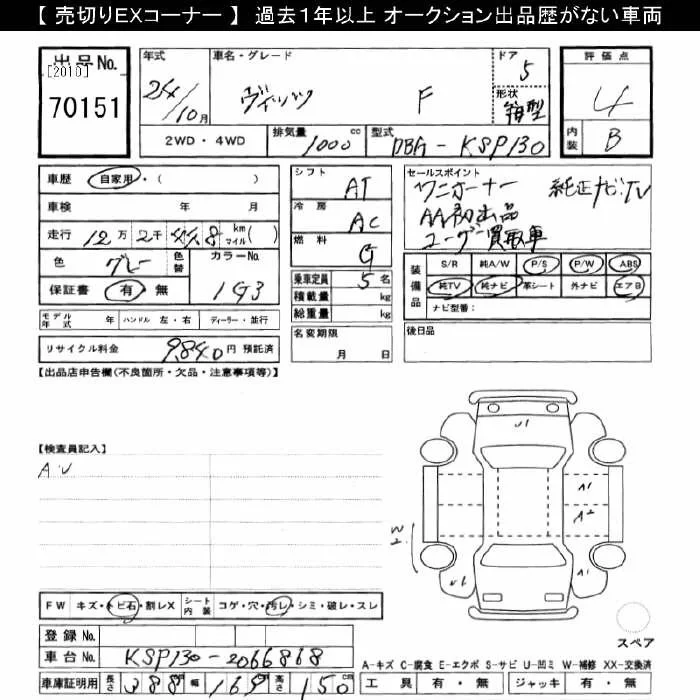 【 売切りEXコーナー 】 過去1年以上 オークション出品歴がない車両
出品No.
[2010]
70151
年式
24/10月
車名・グレード
ヴィッツ F
ドア
5
形状
箱型
評価点
4
内装
B
2WD・4WD
排気量 1000 cc
型式 DBA-KSP130
車歴 自家用・( )
車検 年 月
走行 12万 2千 448 km マイル( )
色 グレー
色替
カラーNo. 1G3
保証書 有・無
シフト AT
冷房 AC
燃料 G
乗車定員 5名
積載量 kg
総重量 kg
名変期限
月 日
セールスポイント
ワンオーナー 純正ナビTV
AA初出品
ユーザー買取車
装備品
S/R 純A/W P/S P/W ABS
純TV 純ナビ 革シート 外ナビ エアB
ナビ型番:
後日品
モデル年式 年 ハンドル 左・右 ディーラー・並行
リサイクル料金 9,840 円 預託済
【出品店申告欄(不良箇所・欠品・注意事項等)】
【検査員記入】
A・U
U1
A1
A2
W2
U1
A1
FW キズ・トビ石・割レX
シート内装 コゲ・穴・汚レ・シミ・破レ・スレ
登録 No.
車台 No. KSP130-2066868
車庫証明用 長さ 388 幅 169 高さ 150 cm
スペア
A-キズ C-腐食 E-エクボ S-サビ U-凹ミ W-補修 XX-交換済
工具 有・無 ジャッキ 有・無